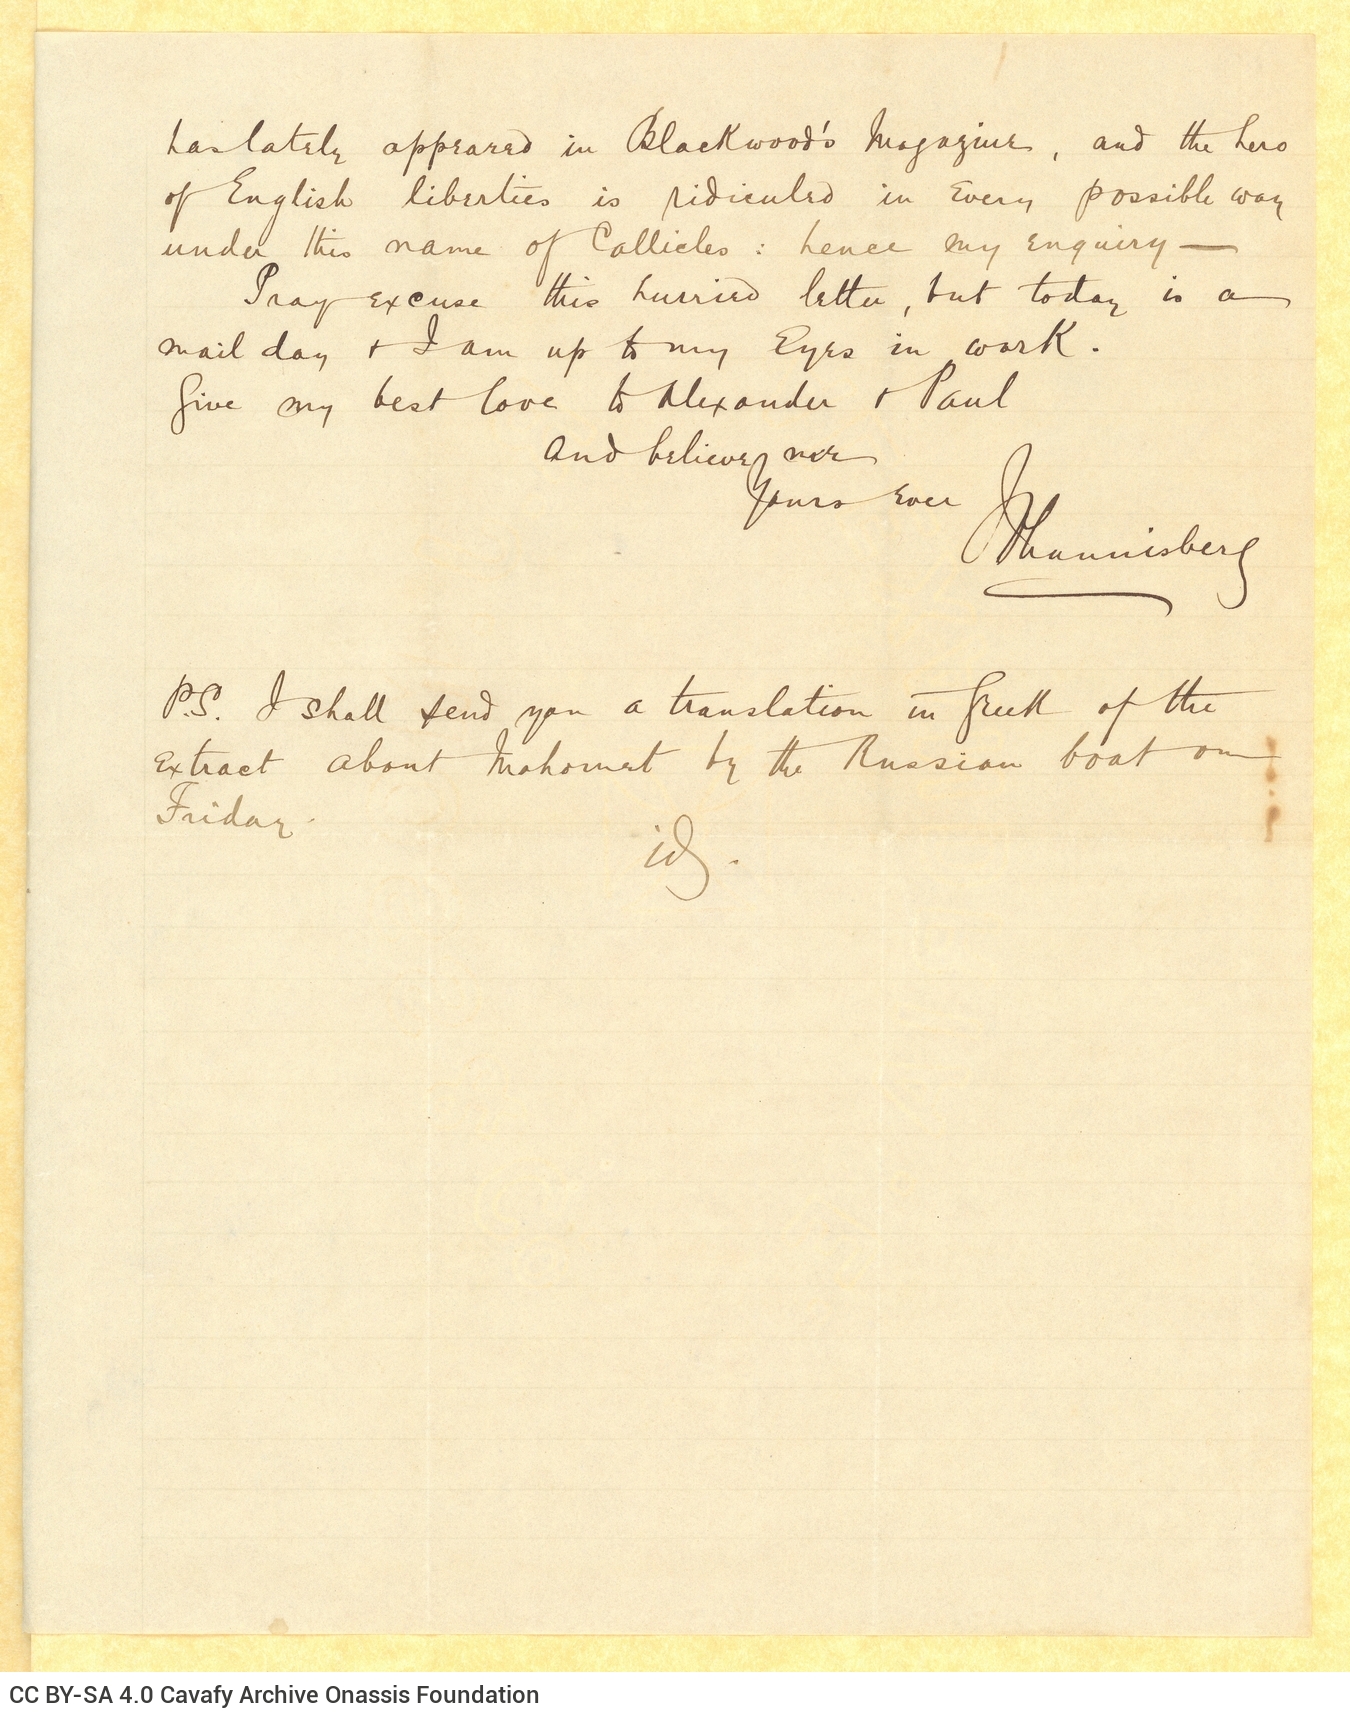 has lately appeared in Blackwood's Magazine, and the hero
of English liberties is ridiculed in every possible way
under this name of Callicles : hence my enquiry —
Pray excuse this hurried letter, but today is a
mail day & I am up to my Eyes in work.
Give my best love to Alexander & Paul
and believe me
Yours ever
Johannisberg
P.S. I shall send you a translation in Greek of the
extract about Mahomet by the Russian boat on
Friday.
id.
CC BY-SA 4.0 Cavafy Archive Onassis Foundation